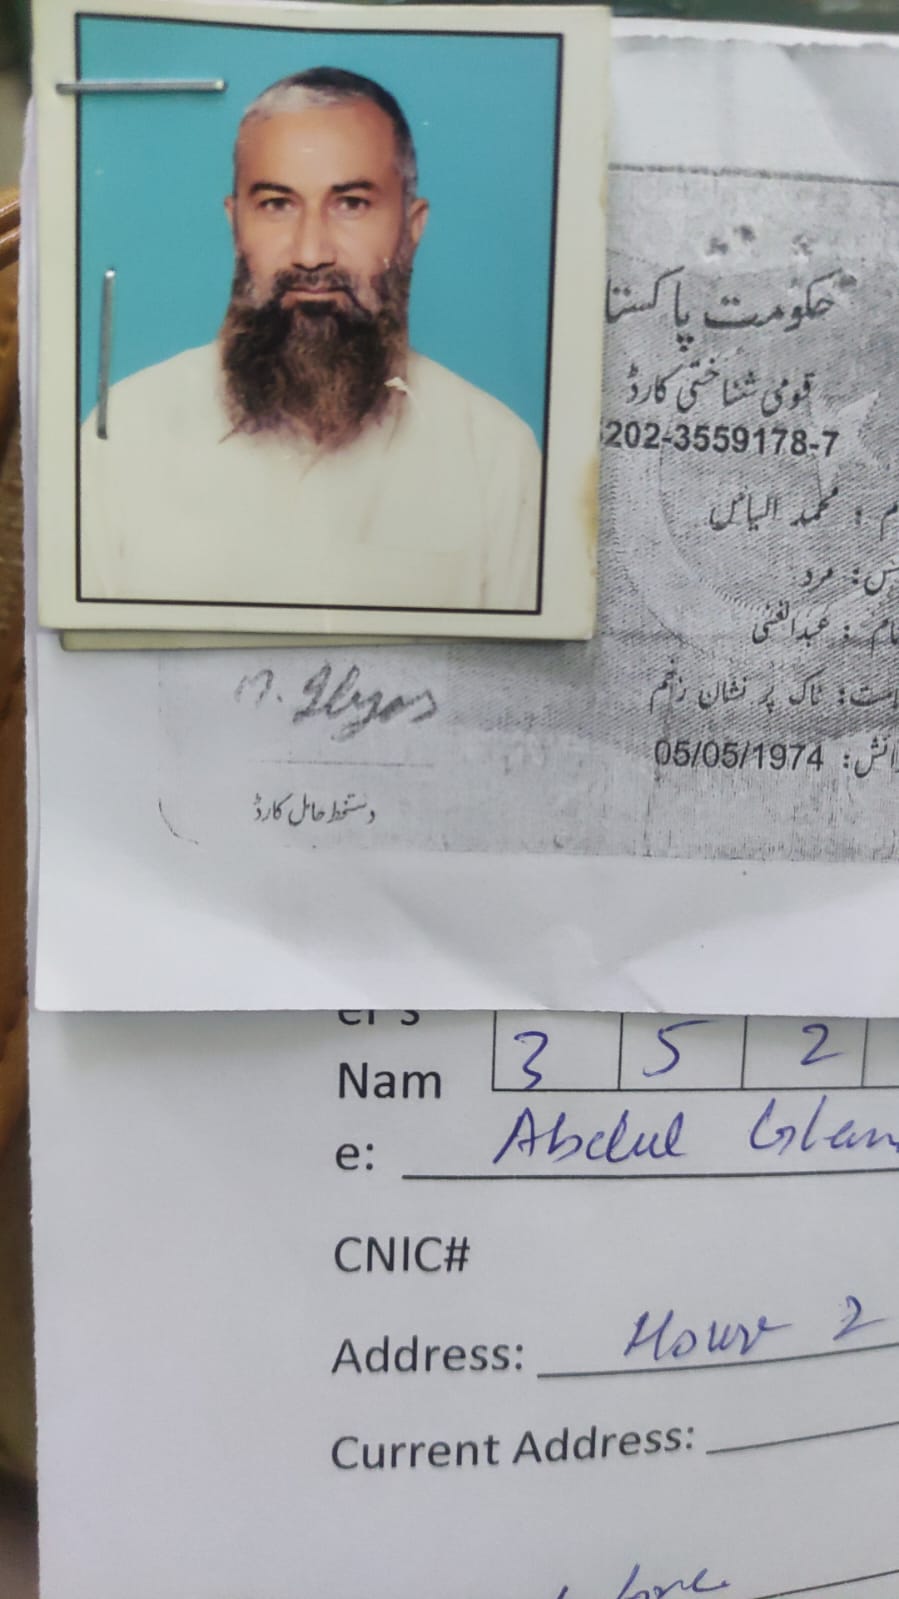 حکومت پاکستا
قومی شناختی کارڈ
202-3559178-7
م : محمد الیاس
مرد
نام : عبدالغنی
ناک پر نشان زخم
05/05/1974
M. Ilyas
دستخط حامل کارڈ
er's
3 5 2
Nam
e: Abdul
CNIC#
Address: House 2
Current Address: